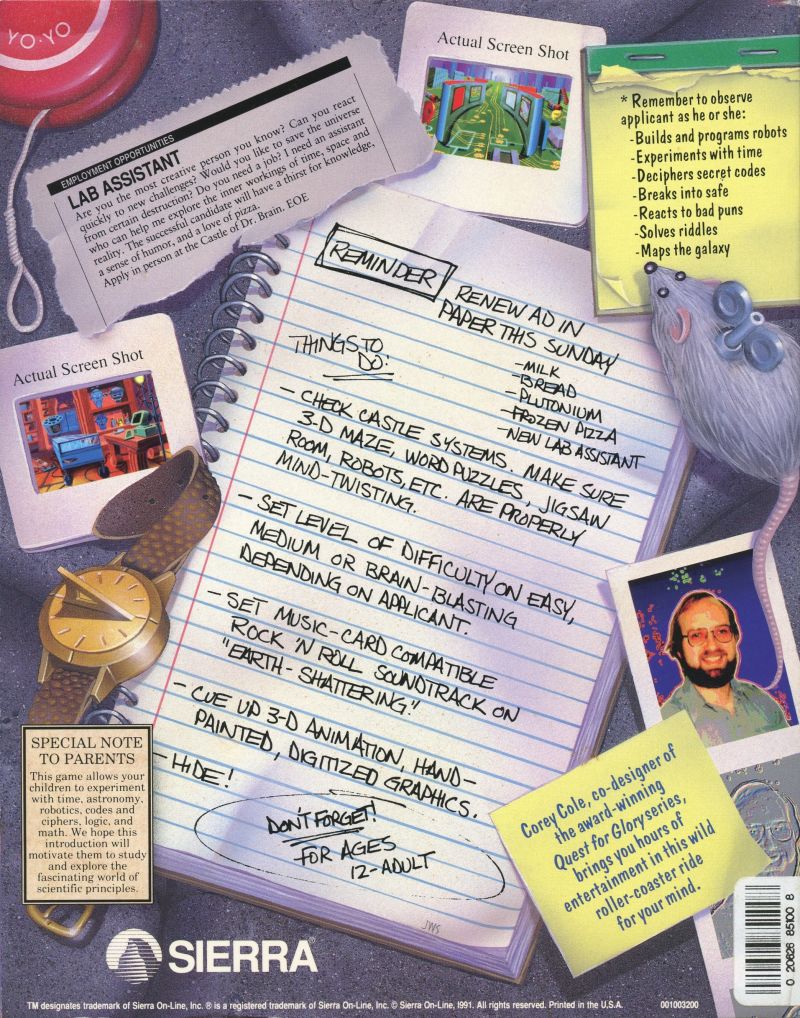 YO-YO
EMPLOYMENT OPPORTUNITIES
LAB ASSISTANT
Are you the most creative person you know? Can you react
quickly to new challenges? Would you like to save the universe
from certain destruction? Do you need a job? I need an assistant
who can help me explore the inner workings of time, space and
reality. The successful candidate will have a thirst for knowledge,
a sense of humor, and a love of pizza.
Apply in person at the Castle of Dr. Brain. EOE
Actual Screen Shot
* Remember to observe
applicant as he or she:
-Builds and programs robots
-Experiments with time
-Deciphers secret codes
-Breaks into safe
-Reacts to bad puns
-Solves riddles
-Maps the galaxy
Actual Screen Shot
REMINDER
RENEW AD IN
PAPER THIS SUNDAY
-MILK
-BREAD
-PLUTONIUM
-FROZEN PIZZA
-NEW LAB ASSISTANT
THINGS TO
DO:
- CHECK CASTLE SYSTEMS. MAKE SURE
3-D MAZE, WORD PUZZLES, JIGSAW
ROOM, ROBOTS, ETC. ARE PROPERLY
MIND-TWISTING.
- SET LEVEL OF DIFFICULTY ON EASY,
MEDIUM OR BRAIN-BLASTING
DEPENDING ON APPLICANT.
- SET MUSIC-CARD COMPATIBLE
ROCK 'N ROLL SOUNDTRACK ON
"EARTH-SHATTERING."
- CUE UP 3-D ANIMATION, HAND-
PAINTED, DIGITIZED GRAPHICS.
- HIDE!
DON'T FORGET!
FOR AGES
12-ADULT
JWS
SPECIAL NOTE
TO PARENTS
This game allows your
children to experiment
with time, astronomy,
robotics, codes and
ciphers, logic, and
math. We hope this
introduction will
motivate them to study
and explore the
fascinating world of
scientific principles.
Corey Cole, co-designer of
the award-winning
Quest for Glory series,
brings you hours of
entertainment in this wild
roller-coaster ride
for your mind.
SIERRA®
0 20626 85100 8
TM designates trademark of Sierra On-Line, Inc. ® is a registered trademark of Sierra On-Line, Inc. © Sierra On-Line, 1991. All rights reserved. Printed in the U.S.A.
001003200